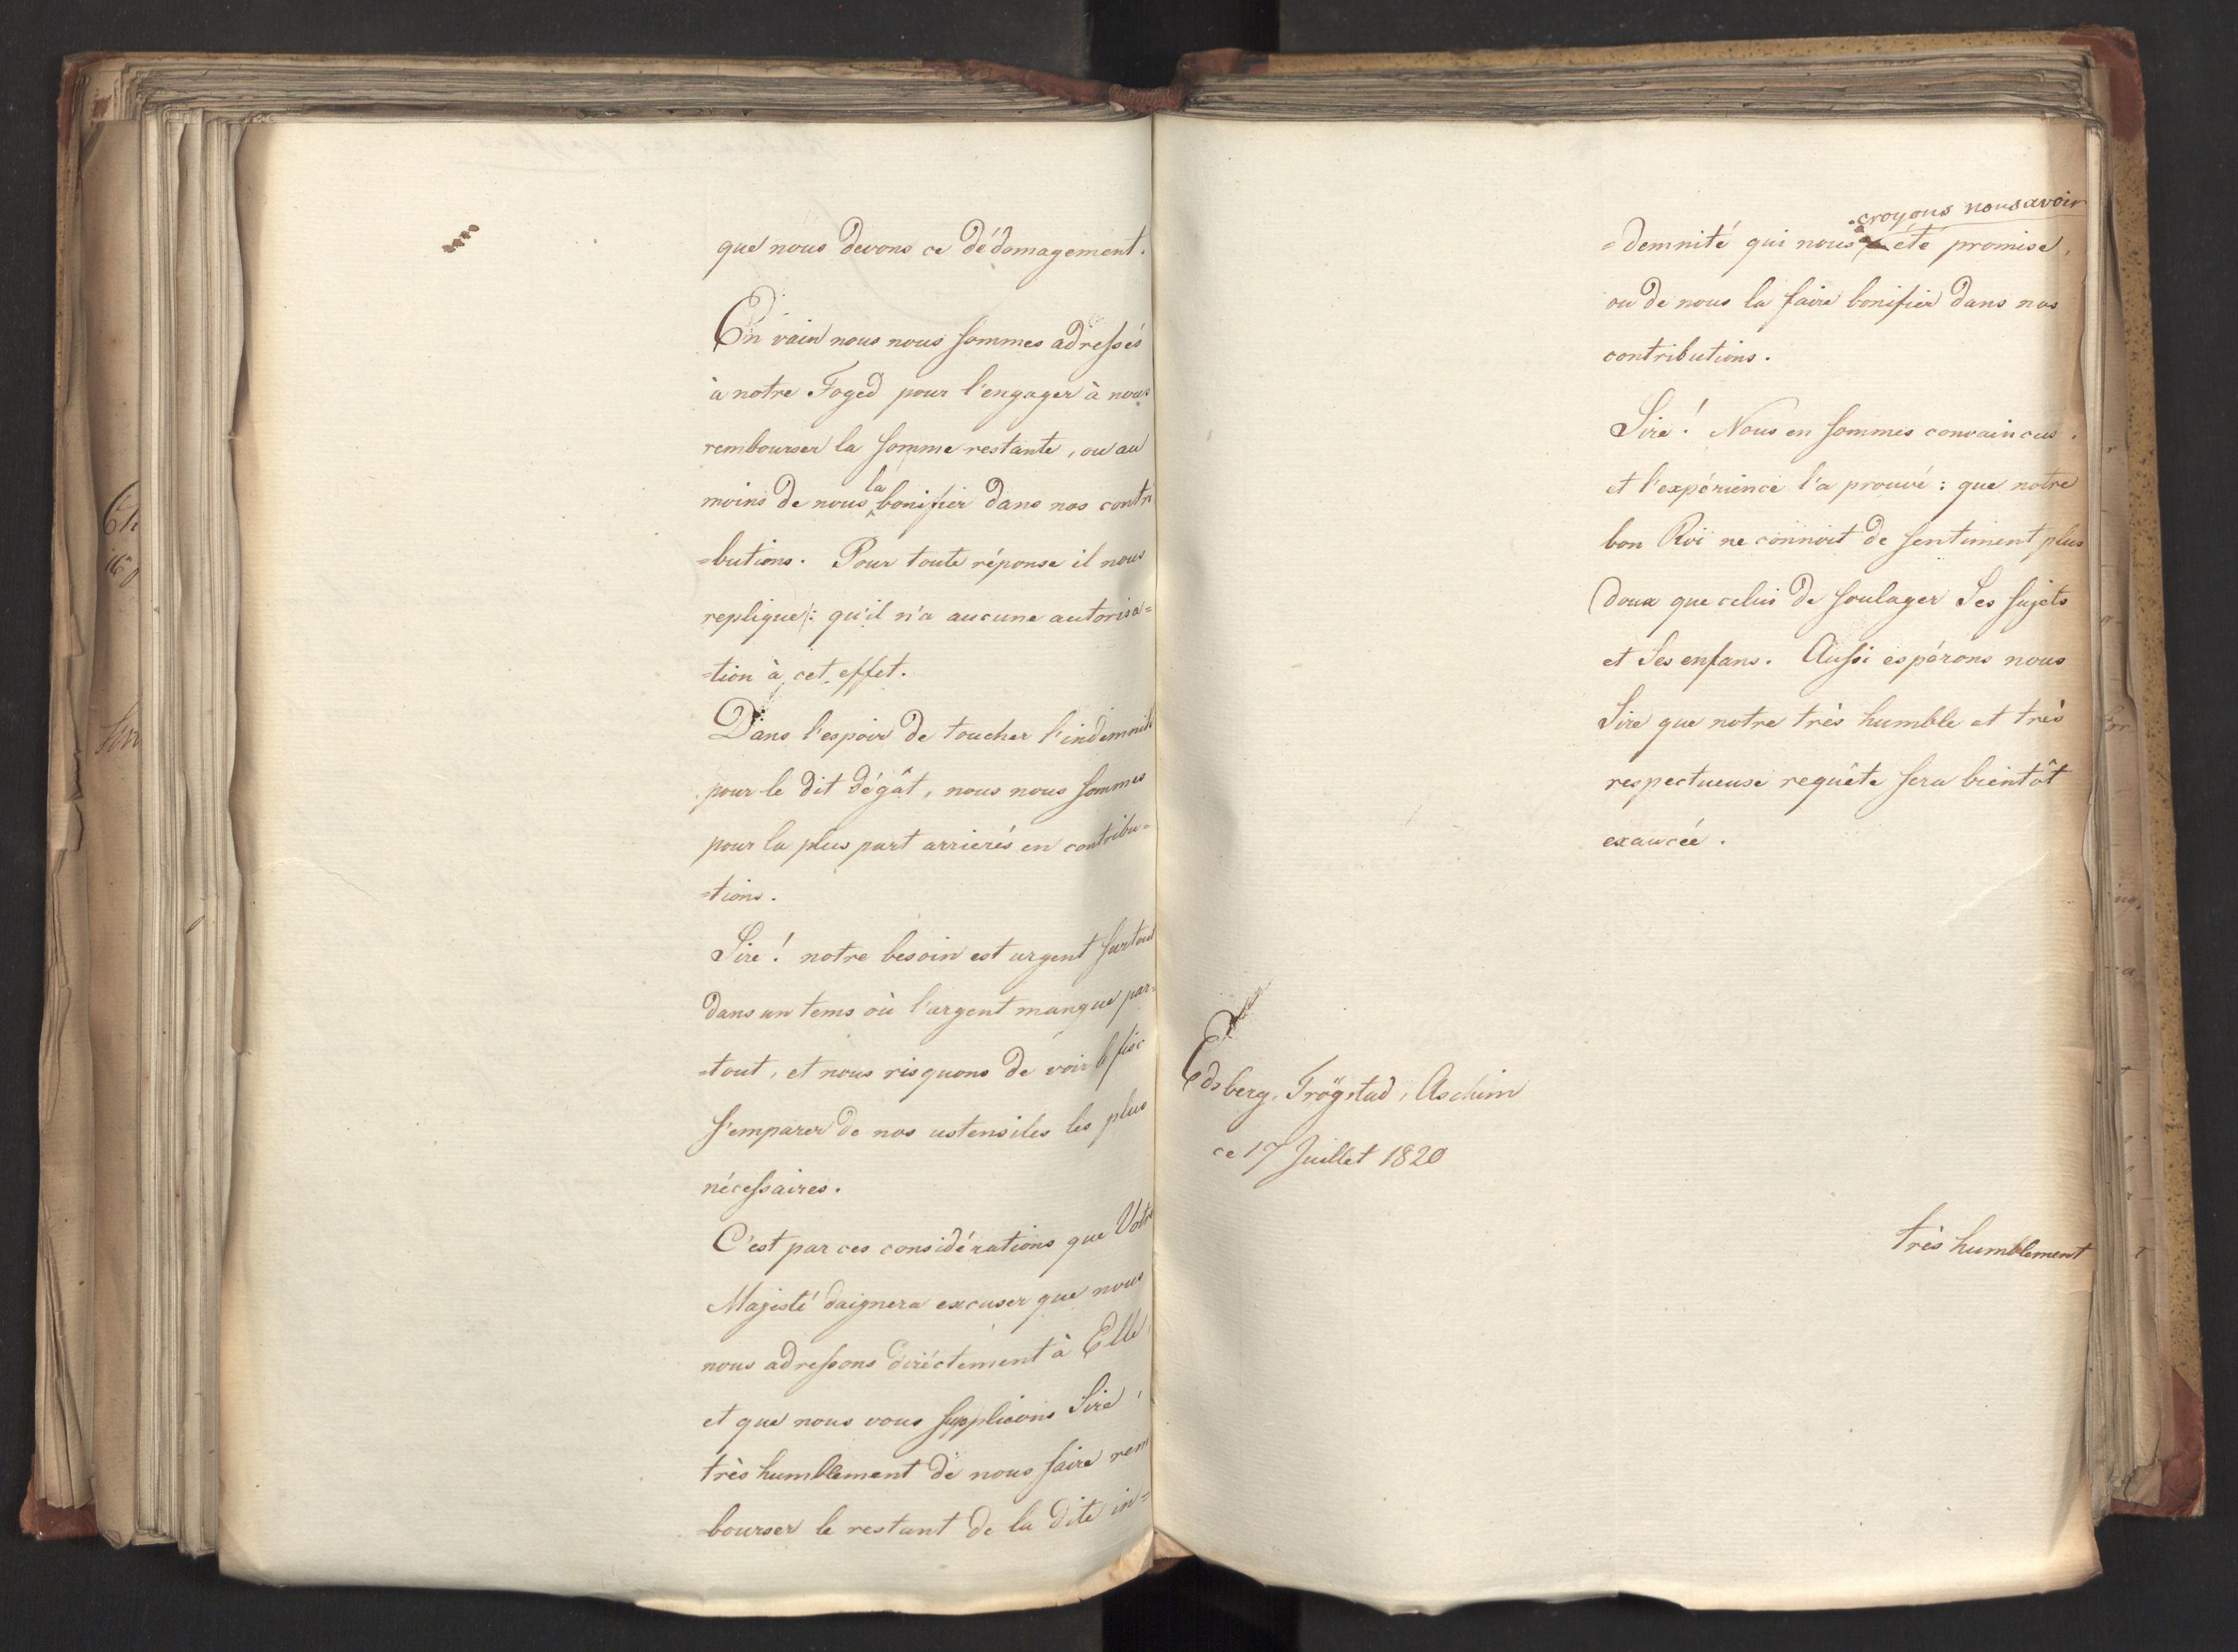 que nous devons ce dédomagement.
En vain nous nous sommes adressés
à notre Foged pour l'engager à nous
rembourser la somme restante, ou au
la
moins de nous bonifier dans nos contri
=butions. Pour toute réponse il nous
replique: qu'il n'a aucune autorisa=
=tion à cet effet.
Dans l'espoir de toucher l'indemnité
pour le dit dégât, nous nous sommes
pour la plus part arrierés en contribu=
=tions.
Sire! notre besoin est urgent surtout
dans un tems où l'argent manque par=
=tout, et nous risquons de voir le fisc
s'emparer de nos ustensiles les plus
nécessaires.
C'est par ces considérations que Votre
Majesté daignera excuser que nous
nous adressons diréctement à Elle,
et que nous vous supplions Sire,
très humblement de nous faire rem
bourser le restant de la dite in=
croyons nous avoir
=demnité qui nous a été promise,
ou de nous la faire bonifier dans nos
contributions.
Sire! Nous en sommes convaincus,
et l'expérience l'a prouvé: que notre
bon Roi ne connoit de sentiment plus
doux que celui de soulager Ses sujets
et Ses enfans. Aussi espérons nous
Sire que notre très humble et très
respectueuse requête sera bientôt
exaucée.
Edsberg, Trögstad, Aschim
ce 17 Juillet 1820
très humblement